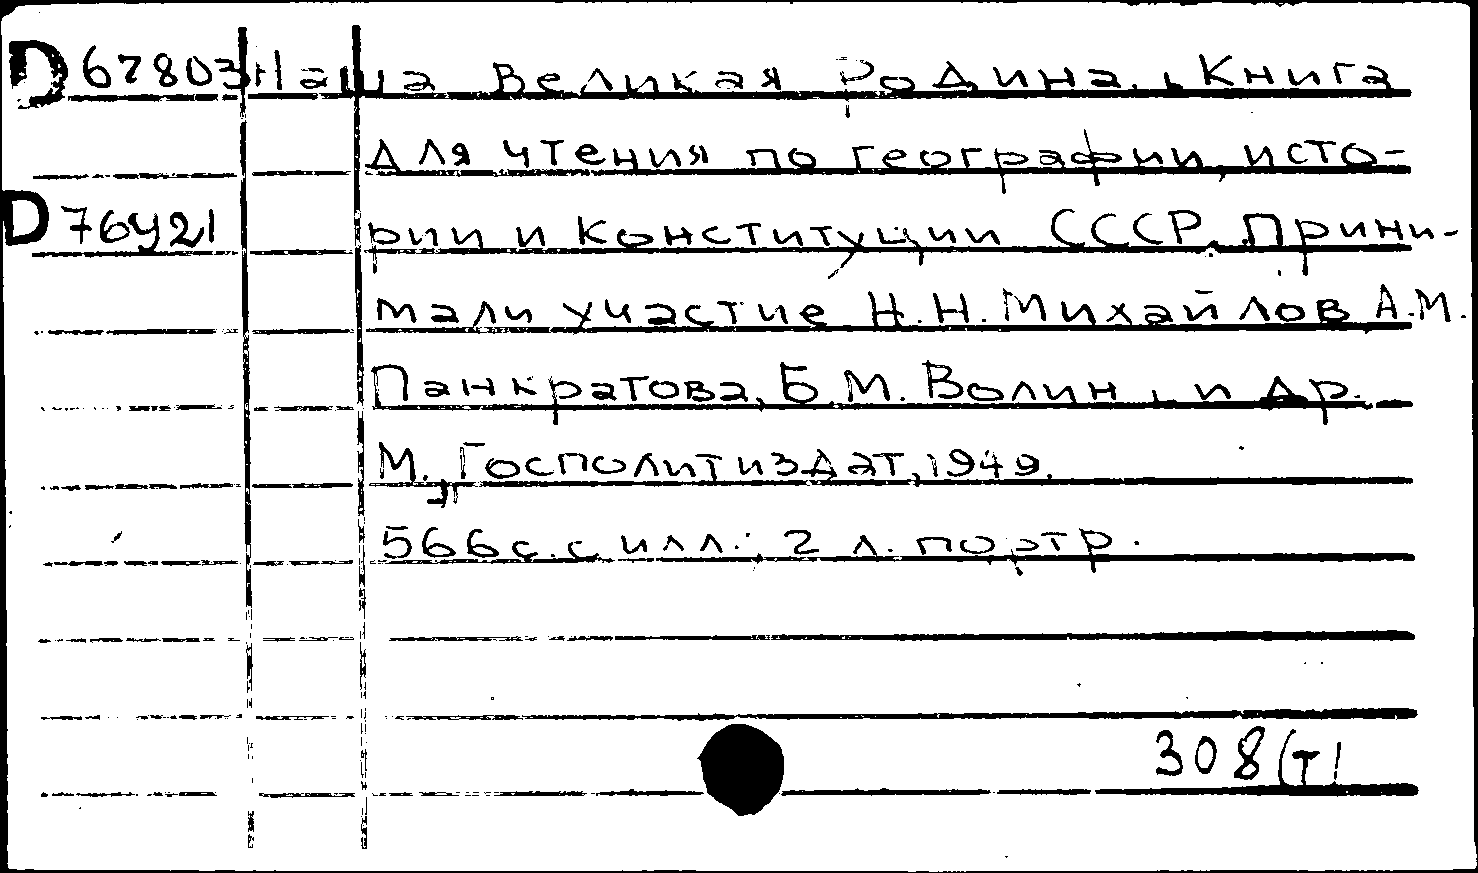 D 67803 Наша Великая Родина. Книга
для чтения по географии, исто-
D 76421 рии и Конституции СССР. Прини-
мали участие Н.Н. Михайлов А.М.
Панкратова, Б.М. Волин, и др.
М., Госполитиздат, 1949.
566 с. с илл.; 2 л. портр.
308(Т)